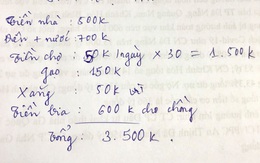 Tiền nhà : 500K
Điện + nước : 700K
Tiền chợ : 50K /ngày × 30 = 1.500K
gạo : 150K
Xăng : 50K
Tiền bia : 600K cho chồng
Tổng : 3.500K.